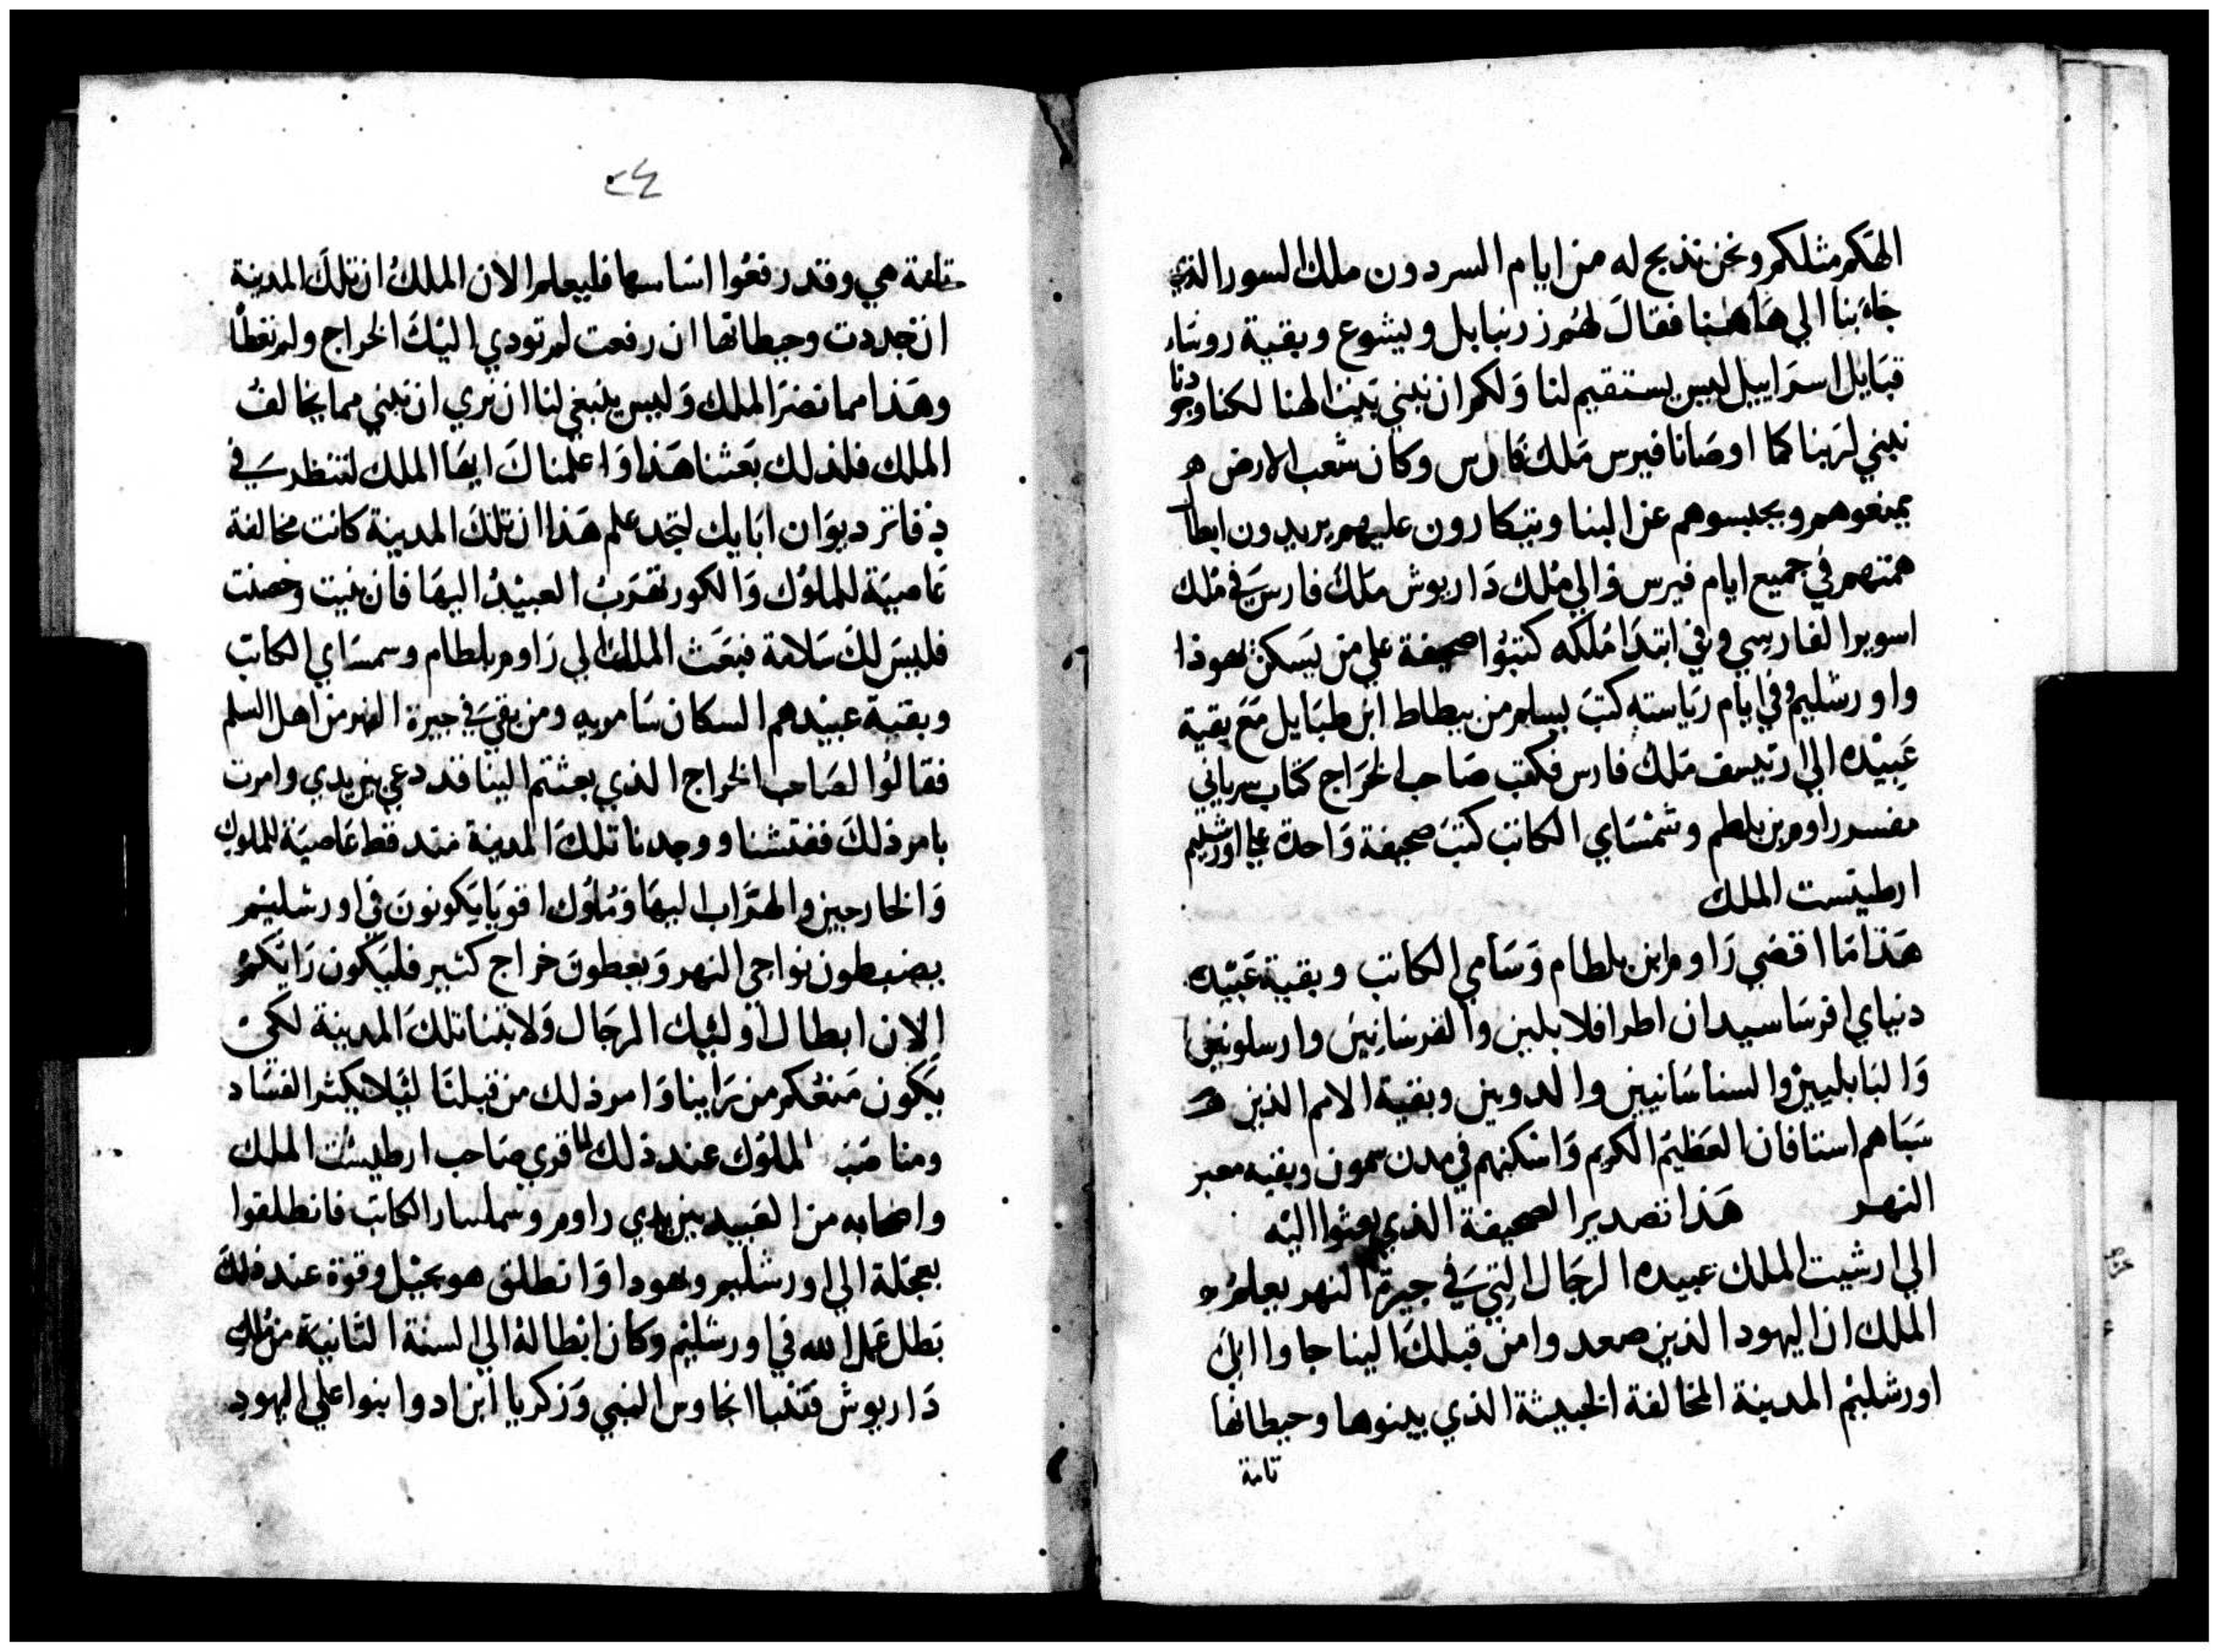 الهكم مثلكم ونحن نذبح له من ايام السردون ملك السور الذي
جاء بنا الي هاهنا فقال لهم زرنبابل ويشوع وبقية روساء
قبايل اسراييل ليس يستقيم لنا ولكم ان نبني بيت الهنا لكنا وجودنا
نبني لربنا كما اوصانا فيرس ملك فارس وكان شعب الارض
يمنعوهم ويحبسوهم عن البنا ويتكارون عليهم يريدون ابطال
همتهم في جميع ايام فيرس والي ملك داريوش ملك فارس في ملك
اسويرا الفارسي وفي ابتدا ملكه كتبوا صحيفة علي من يسكن يهوذا
واورشليم وفي ايام رياسته كتب بسلم من بيطاط ابن طبايل مع بقية
عبيده الي ارتيسف ملك فارس فكتب صاحب الخراج كتاب سرياني
مفسر راوم بن بلطم وشمساي الكاتب كتب صحيفة واحدة علي اورشليم
ارطيست الملك
هذا ما اقضي راوم ابن بلطام وسامي الكاتب وبقية عبيدك
دنياي افرساسيدان اطرافلا بلين والفرسانيين وارسلوينحي
والبابليين والسناسانيين والدوين وبقية الامم الذين
سباهم استافان العظيم الكريم واسكنهم في مدن سمون وبقيه معبر
النهر هذا تصدير الصحيفة الذي بعثوا اليه
الي ارشيت الملك عبيده الرجال التي في جيرة النهر يعلم
الملك ان اليهود الذين صعدوا من قبلك الينا جاوا الي
اورشليم المدينة المخالفة الخبيثة الذي يبنوها وحيطانها
تامة
٢٤
تامة هي وقد رفعوا اساسها فليعلم الان الملك ان تلك المدينة
ان جددت وحيطانها ان رفعت لم تودي اليك الخراج ولم تعطا
وهذا مما تضر الملك وليس ينبغي لنا ان نري ان نبني مما يخالف
الملك فلذلك بعثنا هذا واعلمناك ايها الملك لتنظر في
دفاتر ديوان ابايك لتجد علم هذا ان تلك المدينة كانت مخالفة
عاصية للملوك والكور تقرب العبيد اليها فان بنيت وحصنت
فليس لك سلامة فبعث الملك الي راوم بلطام وسمساي الكاتب
وبقية عبيدهم السكان سامريه ومن بقي في جيرة النهر من اهل السلم
فقالوا لصاحب الخراج الذي بعثتم الينا فقد دعي بين يدي وامرت
بامر ذلك ففتشنا ووجدنا تلك المدينة منذ قط عاصية للملوك
والخارجين والهراب اليها وملوك اقويا يكونون في اورشليم
يضبطون نواحي النهر ويعطون خراج كثير فليكون رايكم
الان ابطال اوليك الرجال ولا بنا تلك المدينة لكي
يكون منعكم من راينا وامر ذلك من قبلنا ليلا يكثر الفساد
ومناصب الملوك عند ذلك لما قري صاحب ارطيست الملك
واصحابه من العبيد بين يدي راوم وسملسار الكاتب فانطلقوا
بعجلة الي اورشليم ويهودا وانطلق هو بخيل وقوة عند ذلك
بطل عمل الله في اورشليم وكان ابطاله الي السنة الثانية من ملك
داريوش فتنبا انحاوس النبي وزكريا ابن ادوا بنوا علي اليهود